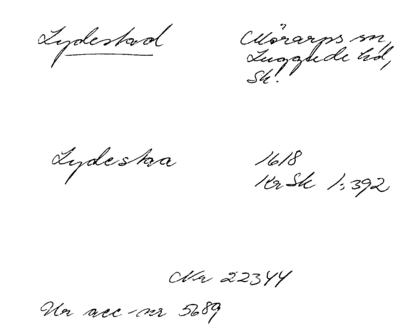 Lydestad
Mörarps sn,
Luggude hd,
Sk.
Lydestaa
1618
KrSk 1:392
Nr 22344
Ur acc-nr 5689